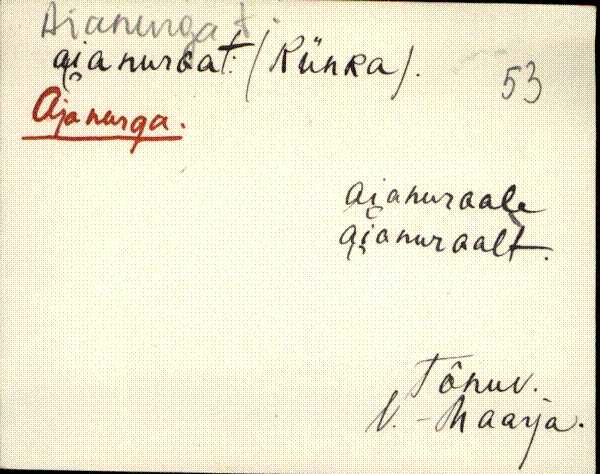 Ajanurgat.
ajanurgat: (Künka). 53
Ajanurga.
ajanurgale
ajanurgalt.
Tõnuv.
V.-Maarja.